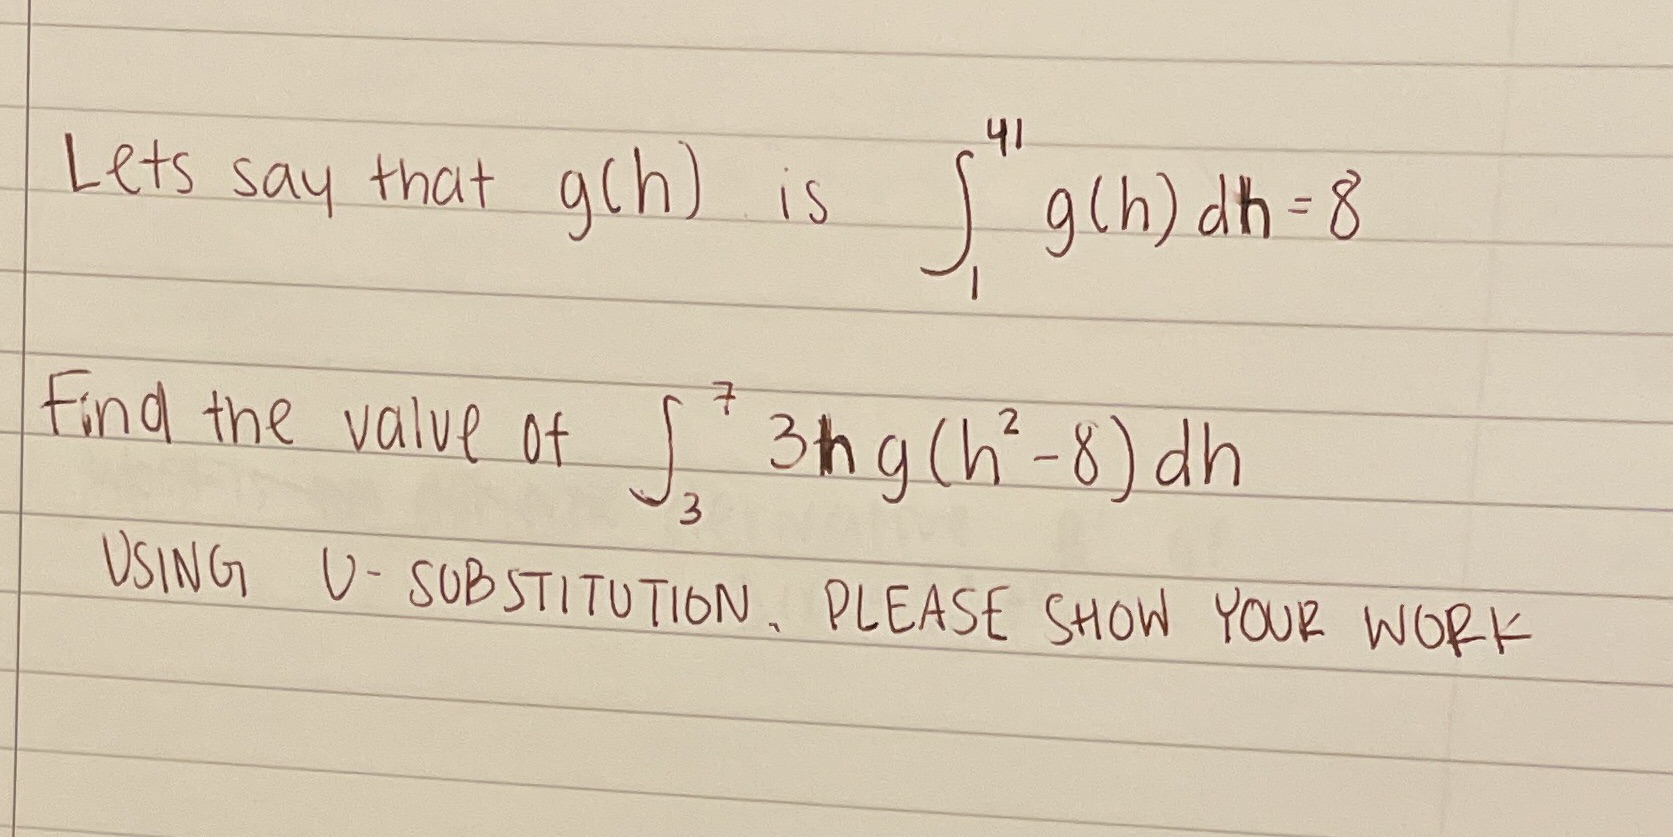 Lets say that g(h) is ∫₁⁴¹ g(h) dh = 8
Find the value of ∫₃⁷ 3h g(h² - 8) dh
USING U- SUBSTITUTION. PLEASE SHOW YOUR WORK